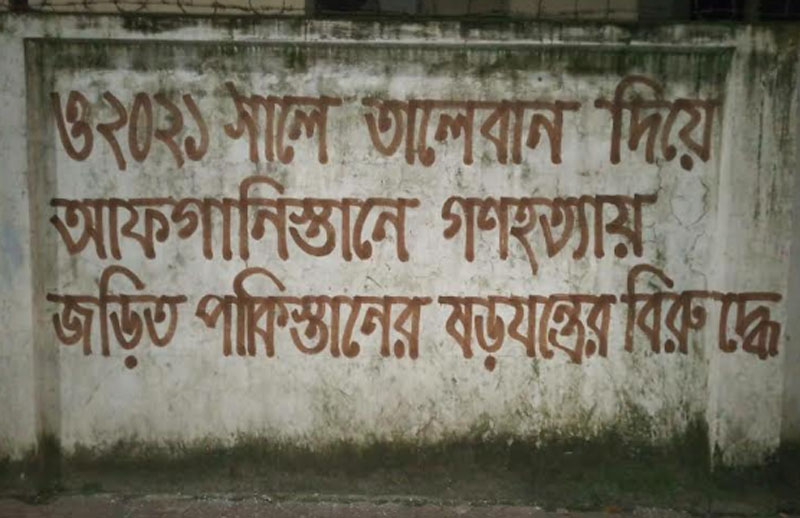 ও ২০২১ সালে তালেবান দিয়ে
আফগানিস্তানে গণহত্যায়
জড়িত পাকিস্তানের ষড়যন্ত্রের বিরুদ্ধে